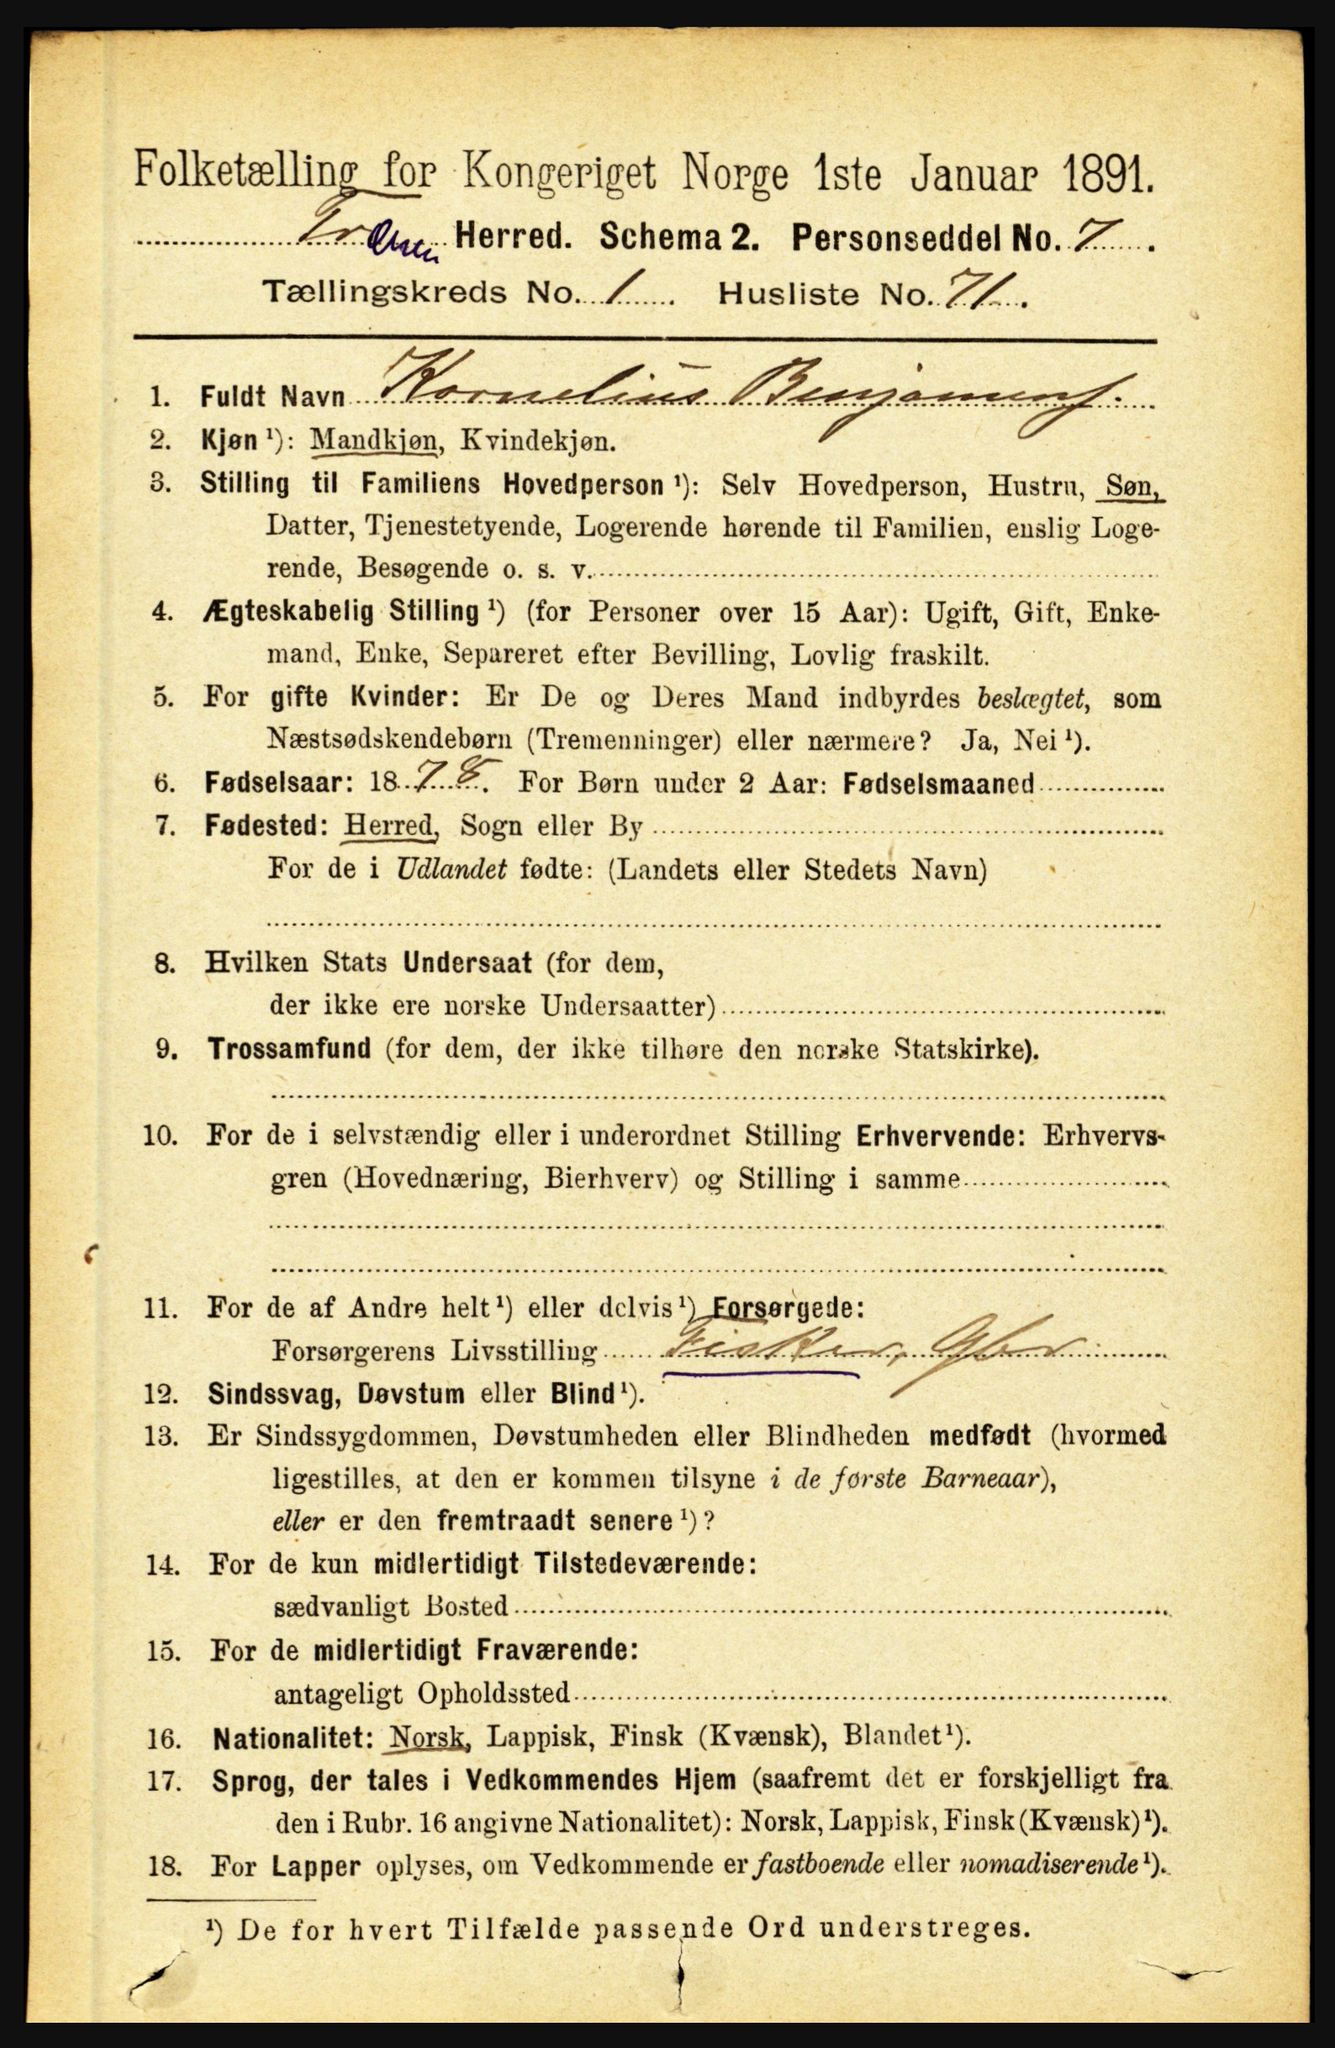 Folketælling for Kongeriget Norge 1ste Januar 1891.
Trænen Herred. Schema 2. Personseddel No. 7.
Tællingskreds No. 1. Husliste No. 71.
1. Fuldt Navn Kornelius Benjamens.
2. Kjøn ¹): Mandkjøn, Kvindekjøn.
3. Stilling til Familiens Hovedperson ¹): Selv Hovedperson, Hustru, Søn,
Datter, Tjenestetyende, Logerende hørende til Familien, enslig Loge-
rende, Besøgende o. s. v.
4. Ægteskabelig Stilling ¹) (for Personer over 15 Aar): Ugift, Gift, Enke-
mand, Enke, Separeret efter Bevilling, Lovlig fraskilt.
5. For gifte Kvinder: Er De og Deres Mand indbyrdes beslægtet, som
Næstsødskendebørn (Tremenninger) eller nærmere? Ja, Nei ¹).
6. Fødselsaar: 1878. For Børn under 2 Aar: Fødselsmaaned
7. Fødested: Herred, Sogn eller By
For de i Udlandet fødte: (Landets eller Stedets Navn)
8. Hvilken Stats Undersaat (for dem,
der ikke ere norske Undersaatter)
9. Trossamfund (for dem, der ikke tilhøre den norske Statskirke).
10. For de i selvstændig eller i underordnet Stilling Erhvervende: Erhvervs-
gren (Hovednæring, Bierhverv) og Stilling i samme
11. For de af Andre helt ¹) eller delvis ¹) Forsørgede:
Forsørgerens Livsstilling Fisker, Gbr
12. Sindssvag, Døvstum eller Blind ¹).
13. Er Sindssygdommen, Døvstumheden eller Blindheden medfødt (hvormed
ligestilles, at den er kommen tilsyne i de første Barneaar),
eller er den fremtraadt senere ¹)?
14. For de kun midlertidigt Tilstedeværende:
sædvanligt Bosted
15. For de midlertidigt Fraværende:
antageligt Opholdssted
16. Nationalitet: Norsk, Lappisk, Finsk (Kvænsk), Blandet ¹).
17. Sprog, der tales i Vedkommendes Hjem (saafremt det er forskjelligt fra
den i Rubr. 16 angivne Nationalitet): Norsk, Lappisk, Finsk (Kvænsk) ¹).
18. For Lapper oplyses, om Vedkommende er fastboende eller nomadiserende ¹).
¹) De for hvert Tilfælde passende Ord understreges.